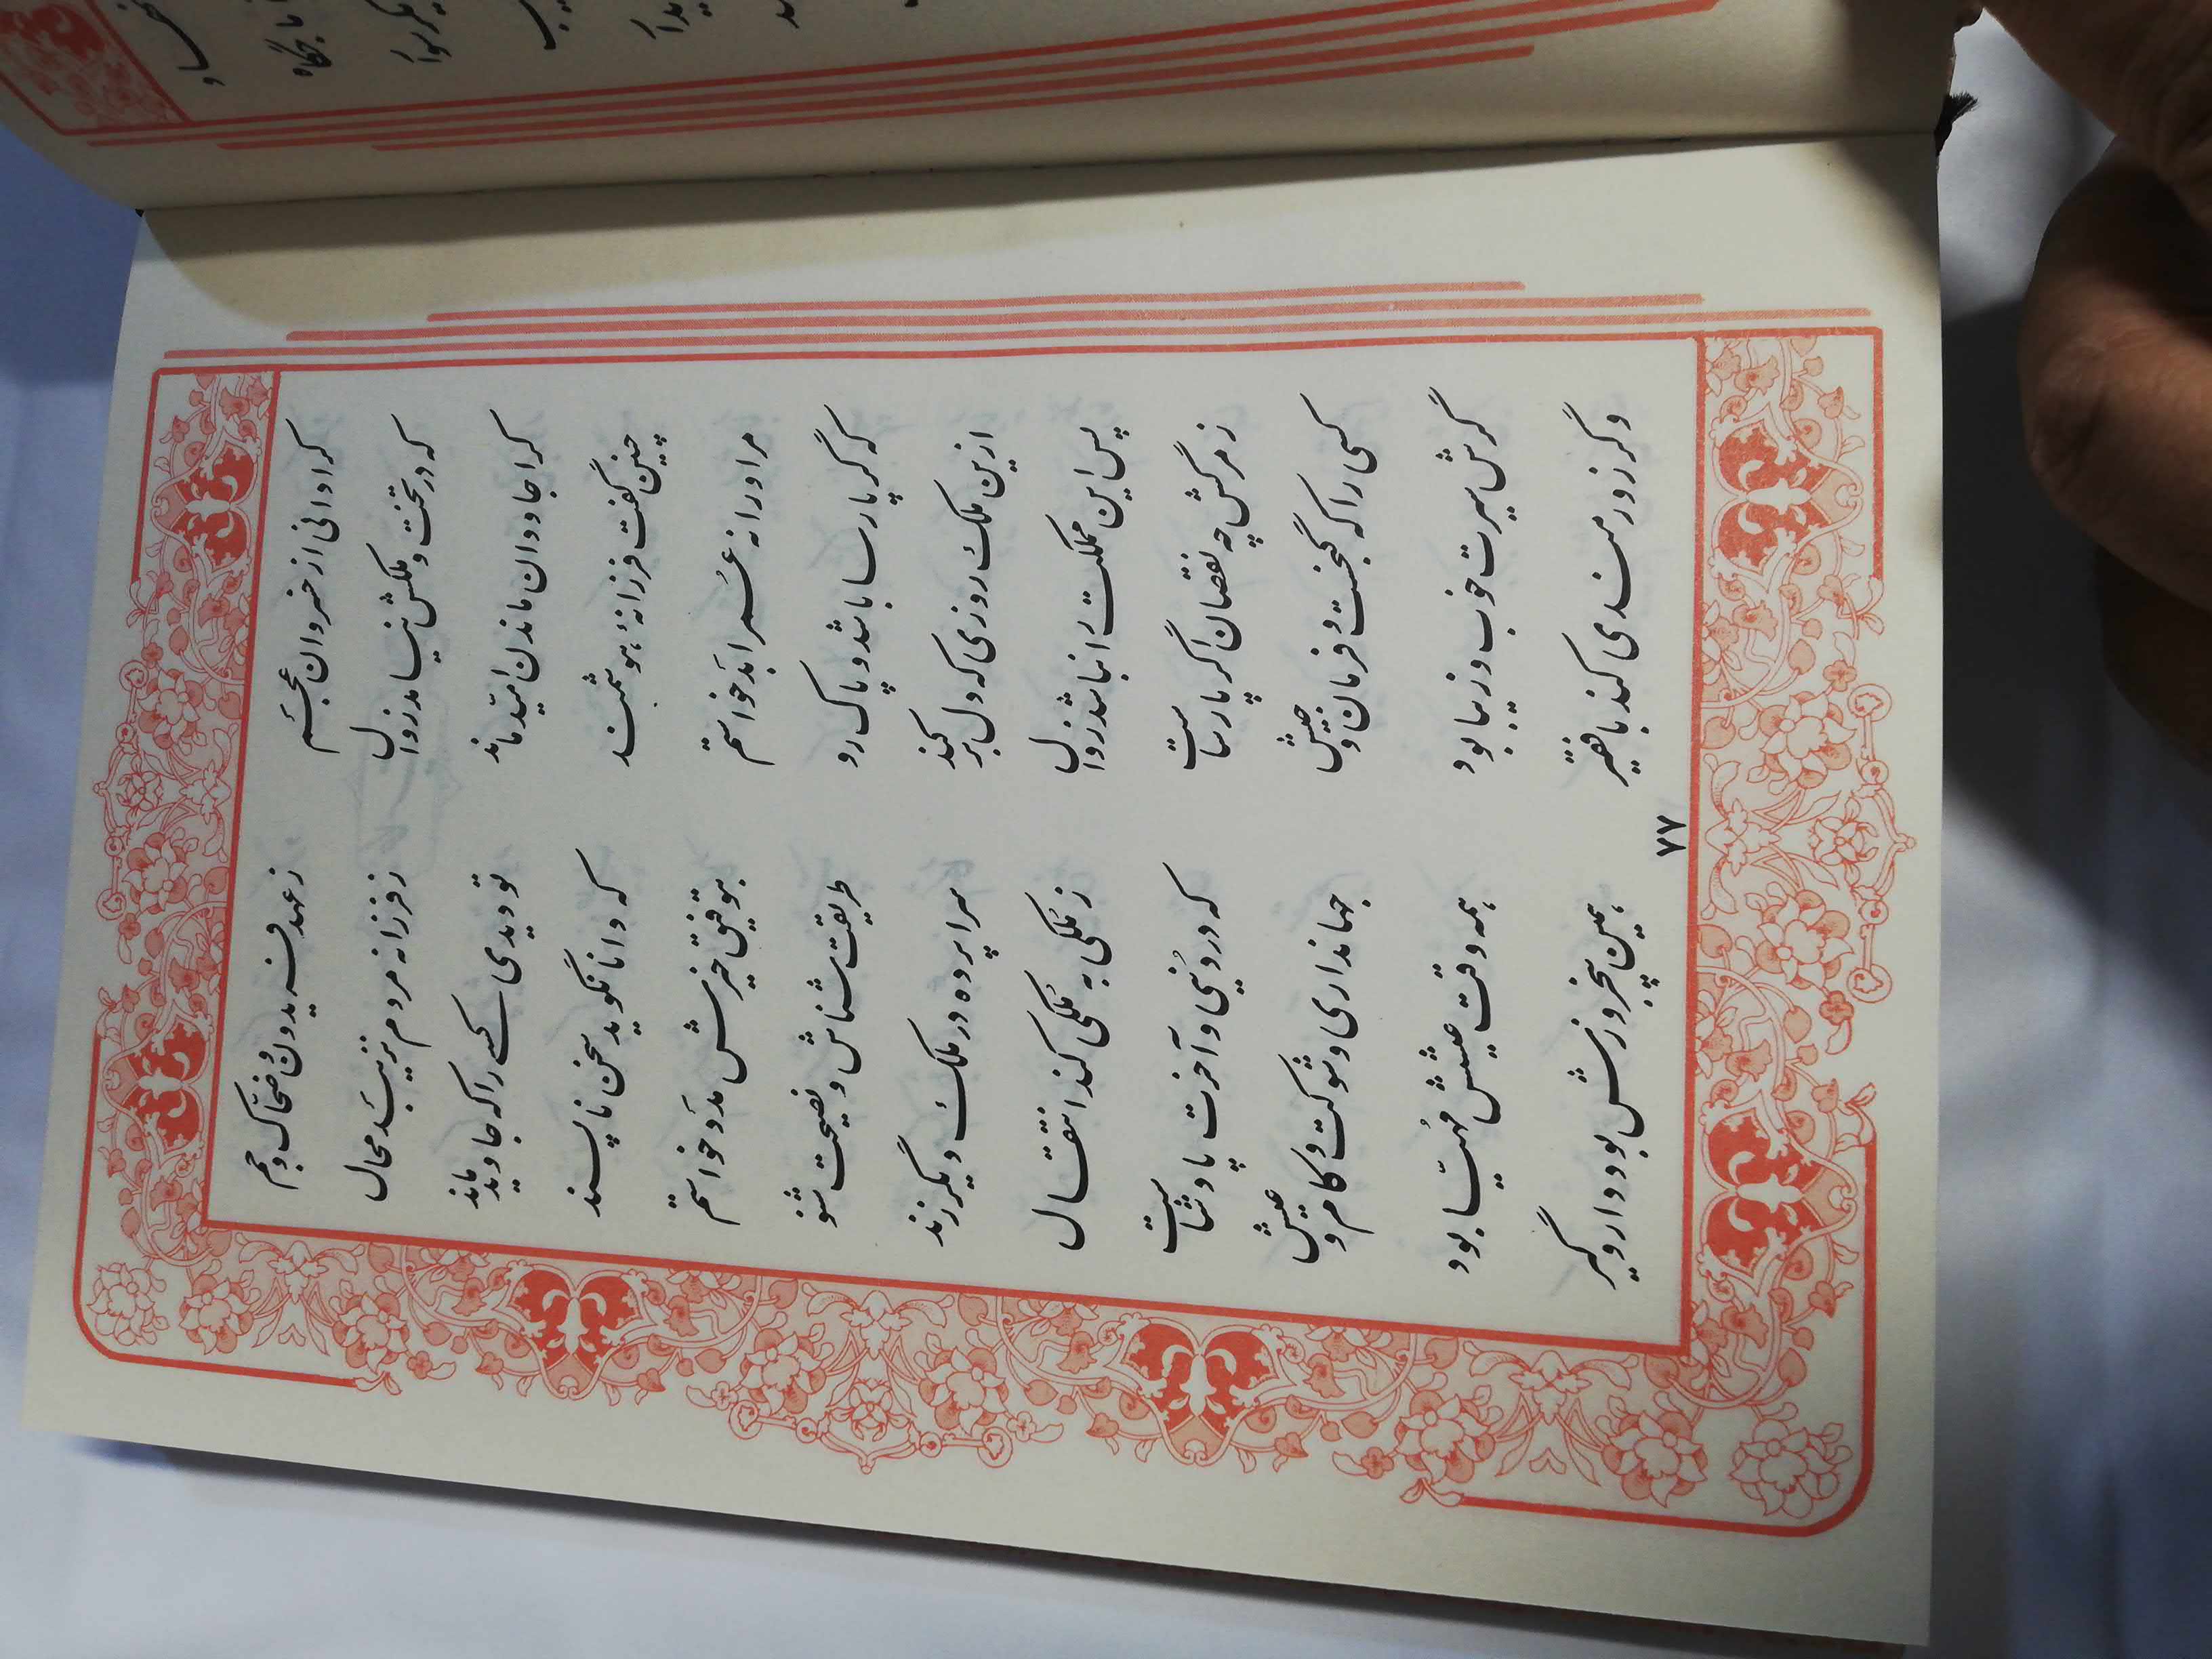 کرا دانی از خسروان عجم	ز عهد فریدون و ضحّاک و جم
که در تخت و ملکش نیامد زوال	ز فرزانه مردم نزیبد محال
کرا جاودان ماندن امّید ماند	تو دیدی کسی را که جاوید ماند
چنین گفت فرزانهٔ هوشمند	که دانا نگوید سخن ناپسند
مر او را نه عمر ابد خواستم	بتوفیق خیرش مدد خواستم
که گر پارسا باشد و پاک رو	طریقت شناس و نصیحت شنو
ازین ملک روزی که دل بر کند	سراپرده در ملک دیگر زند
پس این مملکت را نباشد زوال	ز مُلکی به مُلکی کند انتقال
ز مرگش چه نقصان گر پارساست	که در دُنیی و آخرت پادشاست
کسی را که گنجست و فرمان و جیش	جهانداری و شوکت و کام و عیش
گرش سیرت خوب و زیبا بود	همه وقت عیشش مُهیّا بود
وگر زورمندی کند با فقیر	همین پنجروزش بود دار و گیر
۷۷